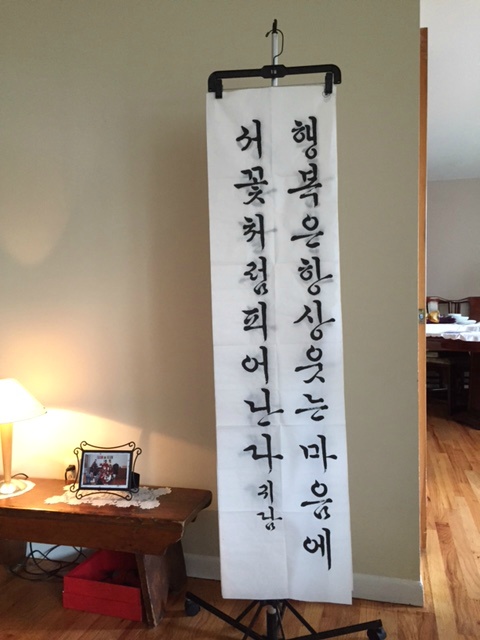 행복은항상웃는마음에
서꽃처럼피어난다
지남